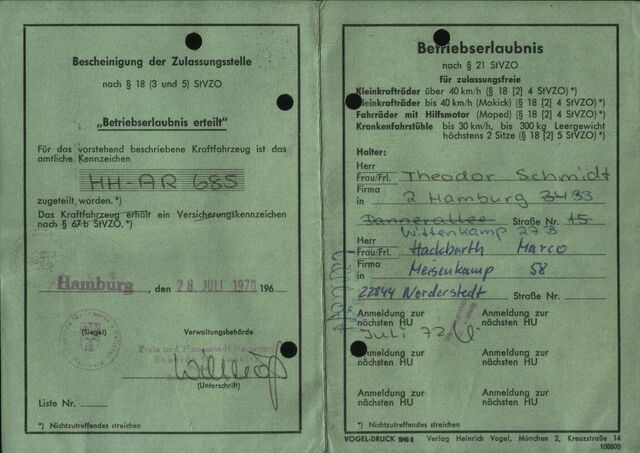 Bescheinigung der Zulassungsstelle
nach § 18 (3 und 5) StVZO
„Betriebserlaubnis erteilt"
Für das vorstehend beschriebene Kraftfahrzeug ist das
amtliche Kennzeichen
HH-AR 685
zugeteilt worden. *)
Das Kraftfahrzeug erhält ein Versicherungskennzeichen
nach § 67 b StVZO. *)
Hamburg, den 28. JULI 1970 196
(Siegel)
Verwaltungsbehörde
Freie und Hansestadt
(Unterschrift)
Liste Nr.
*) Nichtzutreffendes streichen
Betriebserlaubnis
nach § 21 StVZO
für zulassungsfreie
Kleinkrafträder über 40 km/h (§ 18 [2] 4 StVZO) *)
Kleinkrafträder bis 40 km/h (Mokick) (§ 18 [2] 4 StVZO) *)
Fahrräder mit Hilfsmotor (Moped) (§ 18 [2] 4 StVZO) *)
Krankenfahrstühle bis 30 km/h, bis 300 kg Leergewicht
höchstens 2 Sitze (§ 18 [2] 5 StVZO) *)
Halter:
Herr
Frau/Frl. Theodor Schmidt
Firma
in 2 Hamburg
Straße Nr. 15
Wittenkamp 27B
Herr
Frau/Frl. Hackbarth Marco
Firma
in Meisenkamp 58
22844 Norderstedt Straße Nr.
Anmeldung zur nächsten HU
Anmeldung zur nächsten HU
Juli 72
Anmeldung zur nächsten HU
Anmeldung zur nächsten HU
Anmeldung zur nächsten HU
Anmeldung zur nächsten HU
*) Nichtzutreffendes streichen
VOGEL-DRUCK 961 Verlag Heinrich Vogel, München 2, Kreuzstraße 14